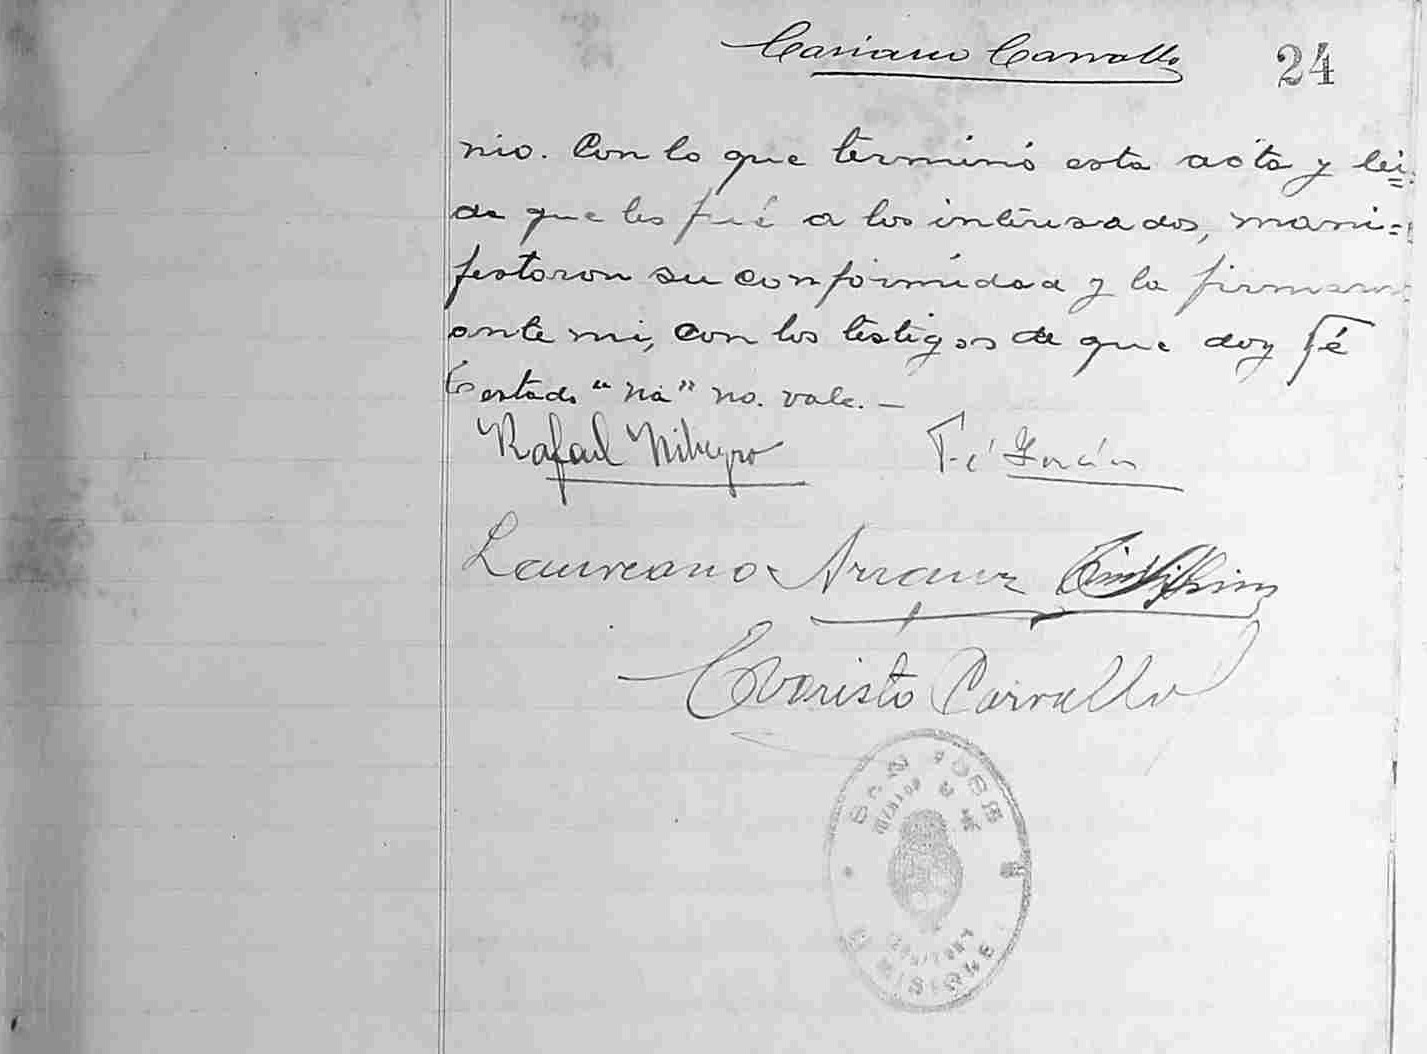 Carvallo 24
nio. Con lo que terminó esta acta y lei=
da que les fué a los interesados, mani=
festaron su conformidad y la firmaron
ante mi, con los testigos de que doy fé
Testado "na" no. vale. —
Rafael
Laureano Arranz
Evaristo Carvallo
SAN JOSE
MISIONES